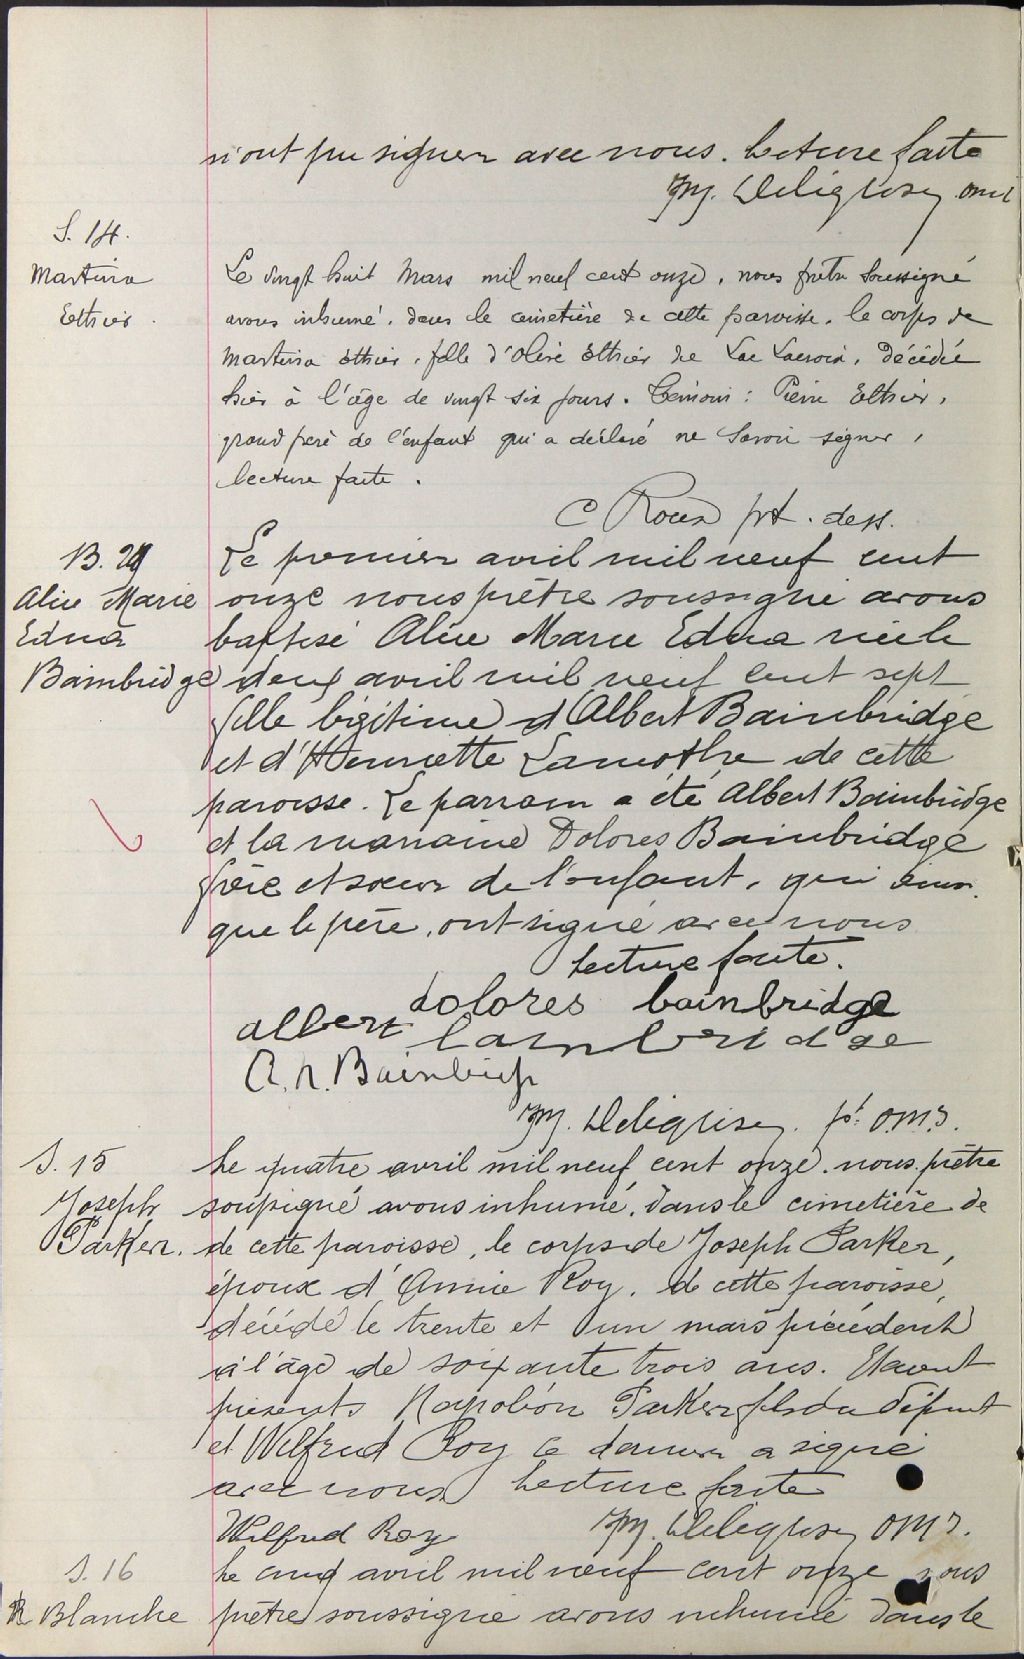 n'ont pu signer avec nous. Lecture faite
S. 14.
Martina
Ethier
Le vingt huit Mars mil neuf cent onze, nous prêtre soussigné
avons inhumé, dans le cimetière de cette paroisse, le corps de
Martina Ethier, fille d' Ethier de Lac Lacroix, décédée
hier à l'âge de vingt six jours. Témoin: Pierre Ethier,
grand père de l'enfant qui a déclaré ne savoir signer,
lecture faite.
C Roux pst. dess.
B. 
Alice Marie
Edna
Bainbridge
Le premier avril mil neuf cent
onze nous prêtre soussigné avons
baptisé Alice Marie Edna née le
deux avril mil neuf cent sept
fille légitime d'Albert Bainbridge
et d'Henriette Lamothe de cette
paroisse. Le parrain a été Albert Bainbridge
et la marraine Dolores Bainbridge
frère et soeur de l'enfant, qui ainsi
que le père, ont signé avec nous
Lecture faite.
dolores bainbridge
albert bainbridge
A. N. Bainbridge
pt. O.M.I.
S. 15
Joseph
Parker.
Le quatre avril mil neuf cent onze. nous prêtre
soussigné avons inhumé, dans le cimetière de
de cette paroisse, le corps de Joseph Parker,
époux d'Annie Roy, de cette paroisse,
décédé le trente et un mars précédent
à l'âge de soixante trois ans. Etaient
présents Napoléon Parker fils du défunt
et Wilfrid Roy ce dernier a signé
avec nous Lecture faite
Wilfred Roy
O.M.I.
S. 16
R Blanche
Le cinq avril mil neuf cent onze nous
prêtre soussigné avons inhumé dans le